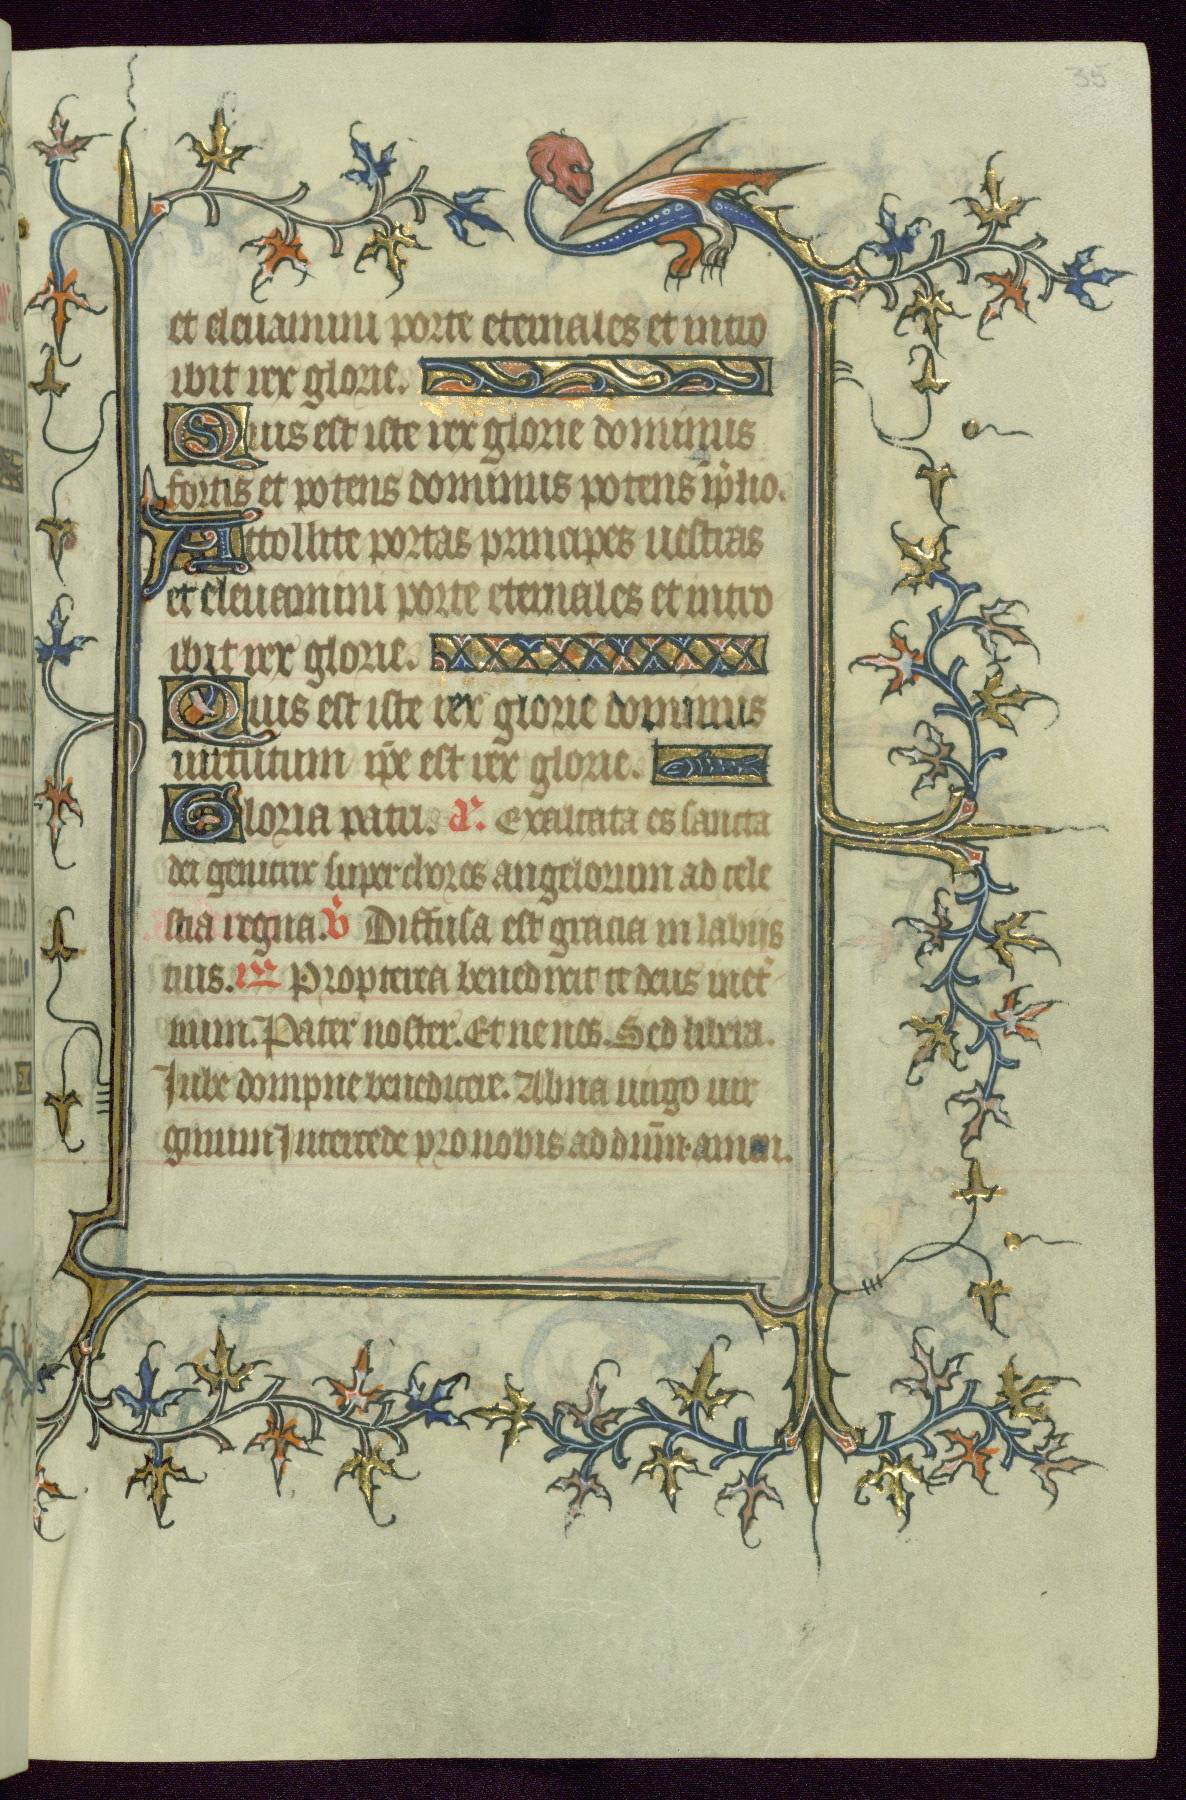 35
et eleuamini porte eternales et intro
ibit rex glorie.
Quis est iste rex glorie dominus
fortis et potens dominus potens ip̄lio.
Attollite portas principes uestras
et eleuamini porte eternales et intro
ibit rex glorie.
Quis est iste rex glorie dominus
uirtutum ip̄e est rex glorie.
Gloria patri. a͛. Exaltata es sancta
dei genitrix super choros angelorum ad cele
stia regna. v̓ Diffusa est gracia in labijs
tuis. Propterea benedixit te deus in et̓
num. Pater noster. Et ne nos. Sed libera.
Jube dompne benedicere. Alma uirgo uir
ginum Intercede pro nobis ad dn̄m. amen.